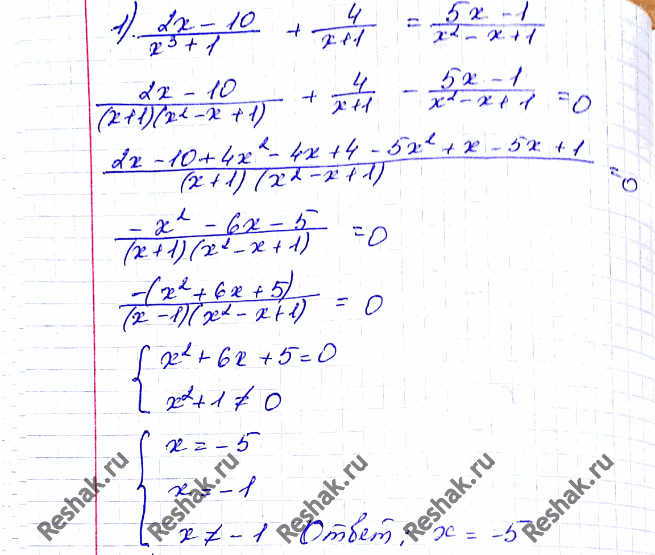 1) (2x - 10)/(x³ + 1) + 4/(x+1) = (5x - 1)/(x² - x + 1)
(2x - 10)/((x+1)(x² - x + 1)) + 4/(x+1) - (5x - 1)/(x² - x + 1) = 0
(2x - 10 + 4x² - 4x + 4 - 5x² + x - 5x + 1)/((x+1)(x² - x + 1)) = 0
(-x² - 6x - 5)/((x+1)(x² - x + 1)) = 0
(-(x² + 6x + 5))/((x - 1)(x² - x + 1)) = 0
{ x² + 6x + 5 = 0
x² + 1 ≠ 0
{ x = -5
x = -1
x ≠ -1 Ответ: x = -5
Reshak.ru
Reshak.ru
Reshak.ru
Reshak.ru
Reshak.ru